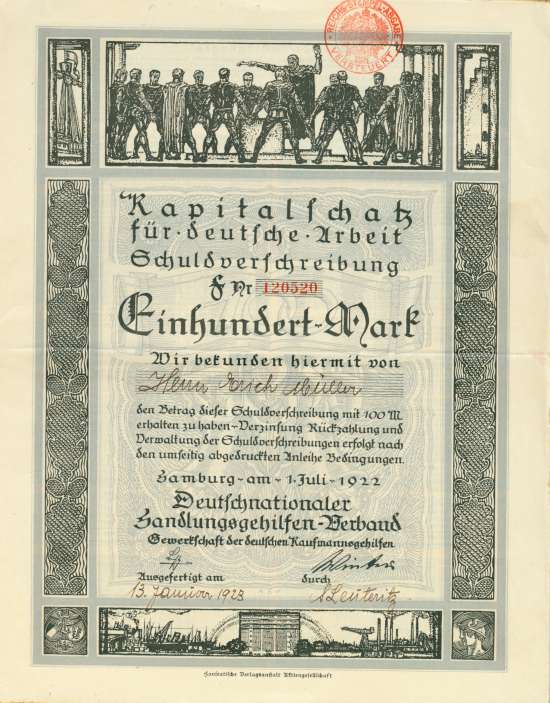 REICHSSTEMPELABGABE
VERSTEUERT
Kapitalschatz
für · deutsche · Arbeit
Schuldverschreibung
F Nr 120520
Einhundert-Mark
Wir bekunden hiermit von
Herrn Erich Müller
den Betrag dieser Schuldverschreibung mit 100 M.
erhalten zu haben - Verzinsung Rückzahlung und
Verwaltung der Schuldverschreibungen erfolgt nach
den umseitig abgedruckten Anleihe Bedingungen.
Hamburg - am - 1. Juli - 1922
Deutschnationaler
Handlungsgehilfen-Verband
Gewerkschaft der deutschen Kaufmannsgehilfen
Ausgefertigt am
durch
13. Januar 1923
Hanseatische Verlagsanstalt Aktiengesellschaft